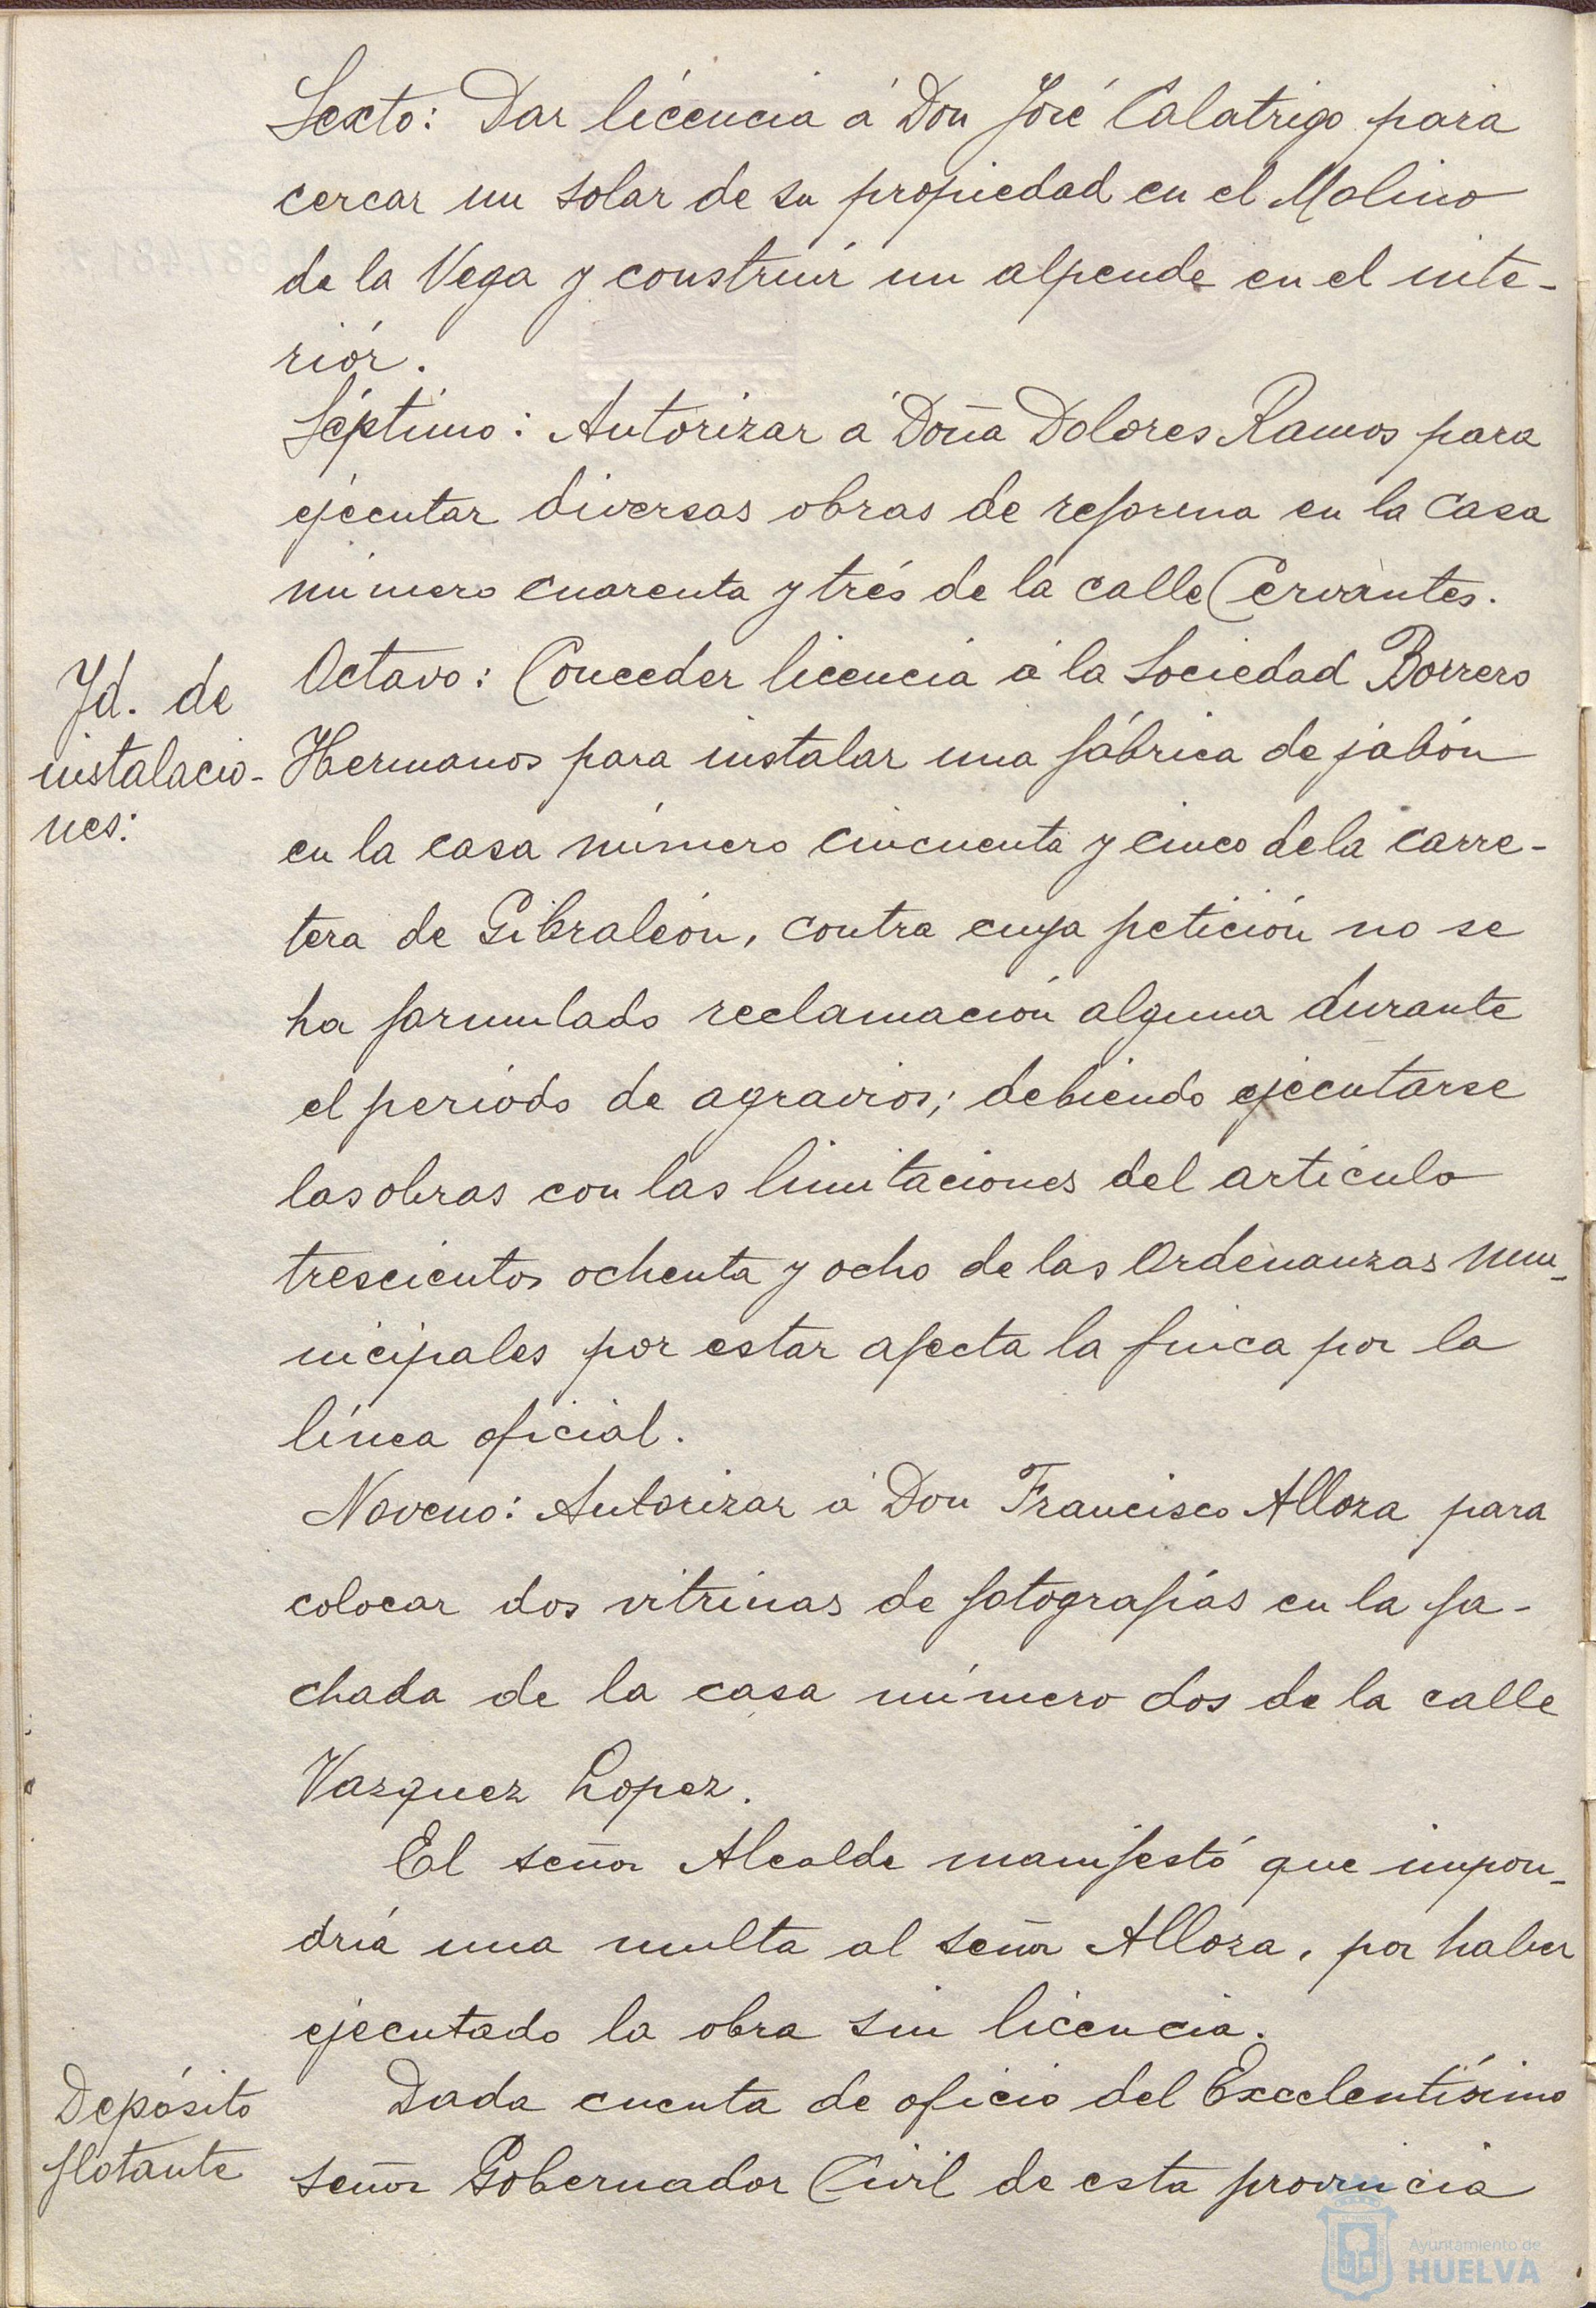 Sexto: Dar licencia á Don José Calatrigo para
cercar un solar de su propiedad en el Molino
de la Vega y construir un alpende en el inte-
riór.
Séptimo: Autorizar á Doña Dolores Ramos para
ejecutar diversas obras de reforma en la casa
número cuarenta y trés de la calle Cervantes.
Id. de
instalacio-
nes:
Octavo: Conceder licencia á la Sociedad Borrero
Hermanos para instalar una fábrica de jabón
en la casa número cincuenta y cinco de la carre-
tera de Gibraleón, contra cuya petición no se
ha formulado reclamación alguna durante
el período de agravios; debiendo ejecutarse
las obras con las limitaciones del artículo
trescientos ochenta y ocho de las Ordenanzas mu-
nicipales por estar afecta la finca por la
línea oficial.
Noveno: Autorizar á Don Francisco Alloza para
colocar dos vitrinas de fotografías en la fa-
chada de la casa número dos de la calle
Vazquez Lopez.
El señor Alcalde manifestó que impon-
dría una multa al señor Alloza, por haber
ejecutado la obra sin licencia.
Depósito
flotante
Dada cuenta de oficio del Excelentísimo
señor Gobernador Civil de esta provincia
Ayuntamiento de
HUELVA